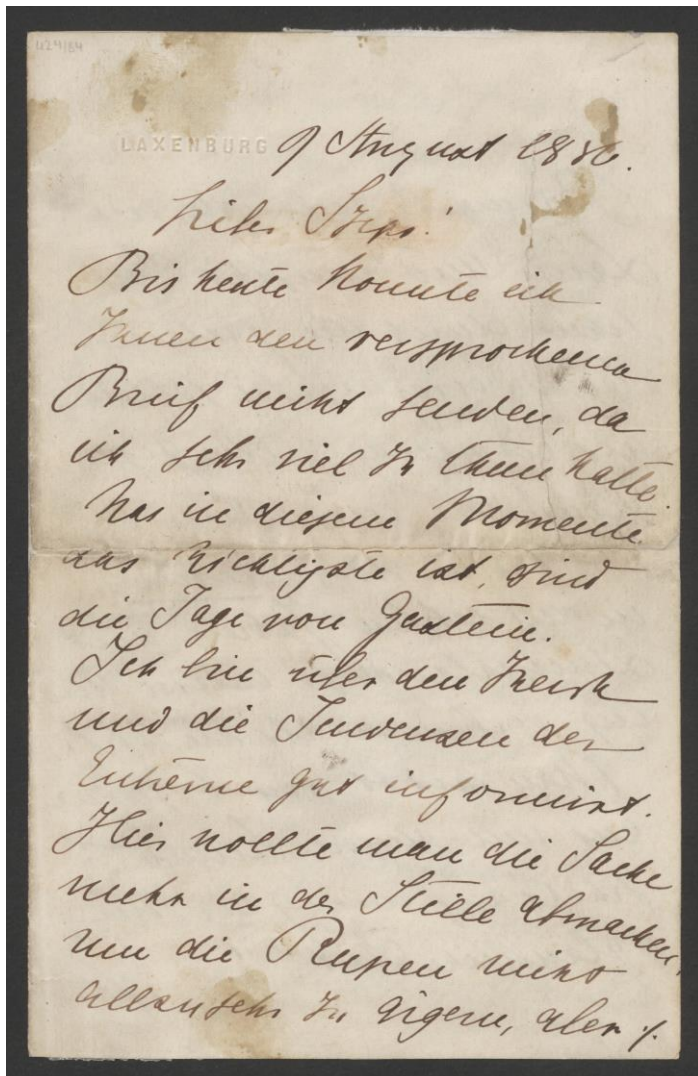 1124/84
LAXENBURG 9 August 1886.
Lieber Szeps!
Bis heute konnte ich
Ihnen den versprochenen
Brief nicht senden, da
ich sehr viel zu thun hatte.
Was in diesem Momente
das Wichtigste ist, sind
die Tage von Gastein.
Ich bin über den Zweck
und die Tendenzen der
Entrevue gut informirt.
Hier wollte man die Sache
mehr in der Stille abmachen,
um die Russen nicht
allzusehr zu ärgern, aber ./.